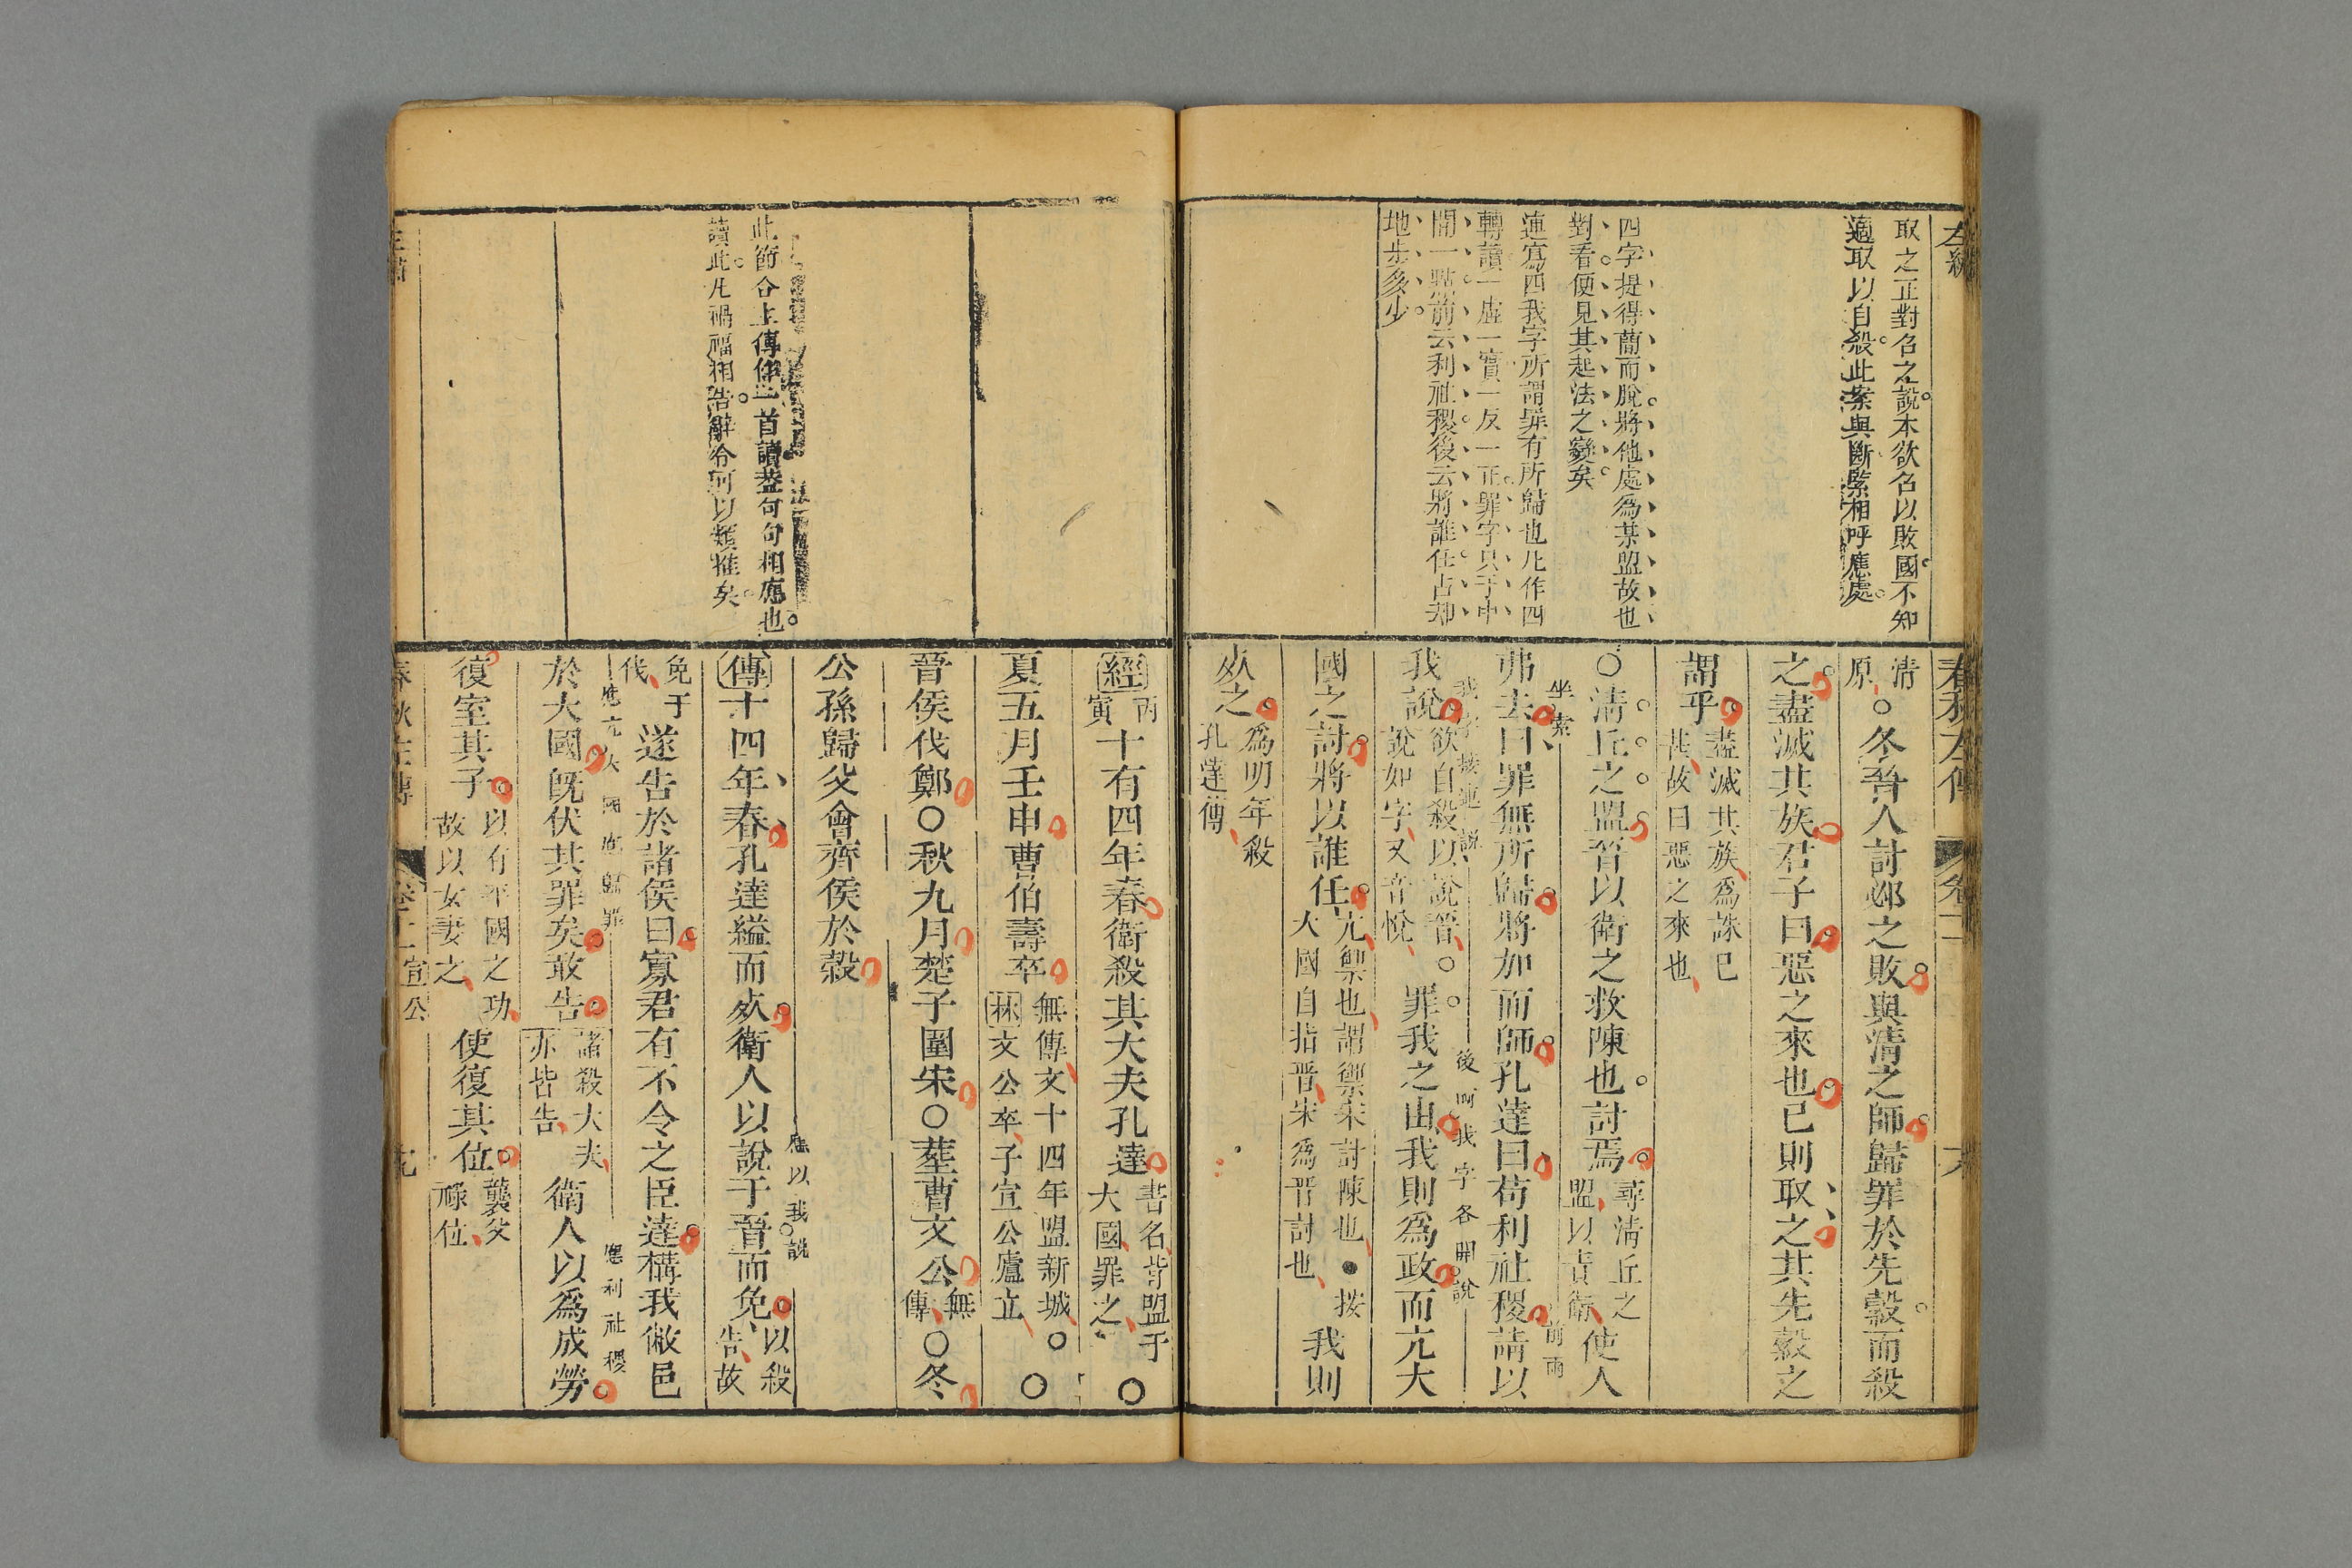 左繡
取之正對召之說本欲召以敗國不知
適取以自殺此案與斷緊相呼應處
四字提得蕳而脫將他處為某盟故也
對看便見其起法之變矣
連寫四我字所謂罪有所歸也凡作四
轉讀一虛一實一反一正罪字只于中
間一點前云利社稷後云將誰任占却
地步多少
春秋左傳 卷十一 大
清原○冬晉人討邲之敗與清之師歸罪於先縠而殺
之盡滅其族君子曰惡之來也已則取之其先縠之
謂乎盡滅其族為誅已甚故曰惡之來也
○清丘之盟晉以衛之救陳也討焉尋清丘之盟以責衛使人
坐索 前兩
弗去曰罪無所歸將加而師孔達曰苟利社稷請以
我字接連說 後兩我字各開說
我說欲自殺以說晉○說如字又音悅罪我之由我則為政而亢大
國之討將以誰任亢禦也謂禦宋討陳也●按大國自指晉宋為晉討也我則
死之為明年殺孔達傳
此節合上傳作一首讀葢句句相應也
讀此凡禍福相告辭令可以類推矣
經丙寅十有四年春衛殺其大夫孔達書名背盟于大國罪之○
夏五月壬申曹伯壽卒無傳文十四年盟新城○林文公卒子宣公廬立○
晉侯伐鄭○秋九月楚子圍宋○葬曹文公無傳○冬
公孫歸父會齊侯於穀
應以我說
傳十四年春孔達縊而死衛人以說于晉而免以殺告故
免于伐遂告於諸侯曰寡君有不令之臣達構我敝邑
應亢大國應歸罪 應利社稷
於大國旣伏其罪矣敢告諸殺大夫亦皆告衛人以為成勞
復室其子以有平國之功故以女妻之使復其位襲父祿位
春秋左傳 卷十一 宣公 九